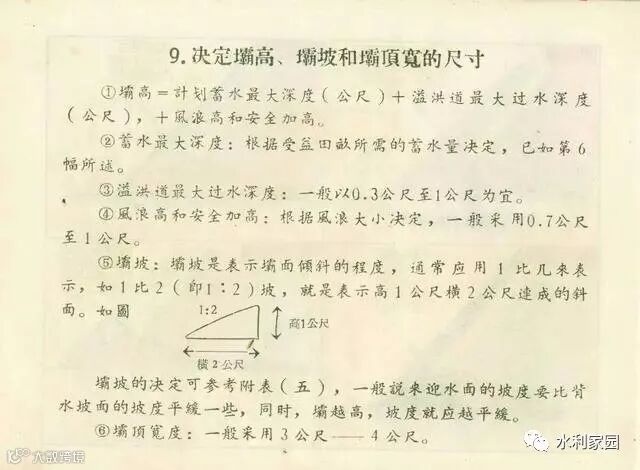 9.决定壩高、壩坡和壩頂寬的尺寸
①壩高＝計划蓄水最大深度(公尺)＋溢洪道最大过水深度
(公尺)，＋風浪高和安全加高。
②蓄水最大深度：根据受益田畝所需的蓄水量决定，已如第6
幅所述。
③溢洪道最大过水深度：一般以0.3公尺至1公尺为宜。
④風浪高和安全加高：根据風浪大小决定，一般采用0.7公尺
至1公尺。
⑤壩坡：壩坡是表示壩面傾斜的程度，通常应用1比几来表
示，如1比2(即1：2)坡，就是表示高1公尺橫2公尺達成的斜
面。如圖
1:2
高1公尺
橫2公尺
壩坡的决定可参考附表(五)，一般説来迎水面的坡度要比背
水坡面的坡度平緩一些，同时，壩越高，坡度就应越平緩。
⑥壩頂寬度：一般采用3公尺——4公尺。
大數跨境
水利家园